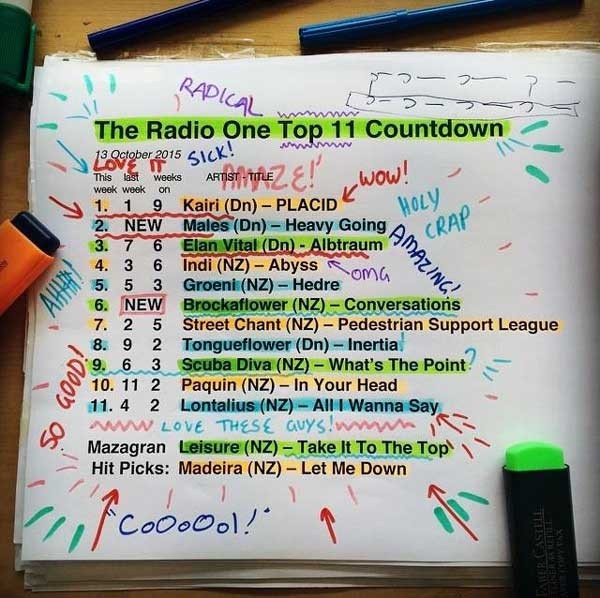 RADICAL
The Radio One Top 11 Countdown
13 October 2015 SICK!
LOVE IT AMAZE!' WOW!
This last weeks ARTIST - TITLE
week week on
1. 1 9 Kairi (Dn) – PLACID
HOLY CRAP
2. NEW Males (Dn) – Heavy Going
AMAZING!
3. 7 6 Elan Vital (Dn) - Albtraum
4. 3 6 Indi (NZ) – Abyss OMG
AHHH!
5. 5 3 Groeni (NZ) – Hedre
6. NEW Brockaflower (NZ) – Conversations
7. 2 5 Street Chant (NZ) – Pedestrian Support League
8. 9 2 Tongueflower (Dn) – Inertia
9. 6 3 Scuba Diva (NZ) – What's The Point?
SO GOOD!
10. 11 2 Paquin (NZ) – In Your Head
11. 4 2 Lontalius (NZ) – All I Wanna Say
LOVE THESE GUYS!
Mazagran Leisure (NZ) – Take It To The Top
Hit Picks: Madeira (NZ) – Let Me Down
"COOOOOl!"
FABER CASTELL